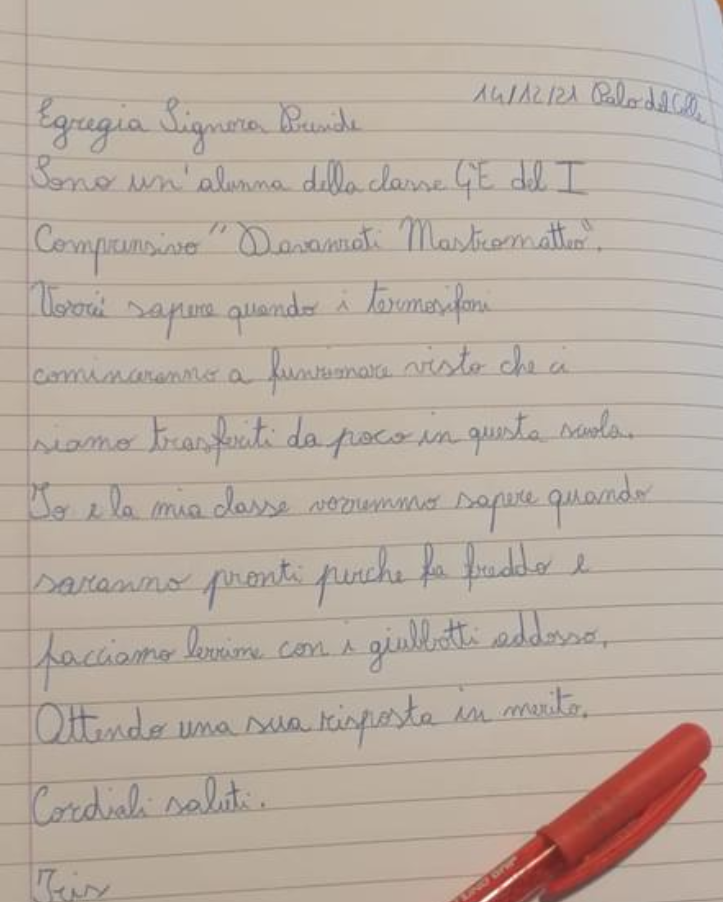 14/12/21 Palo del Colle
Egregia Signora Preside
Sono un'alunna della classe GE del I
Comprensivo "Davanzati Mastromatteo".
Vorrei sapere quando i termosifoni
cominceranno a funzionare visto che ci
siamo trasferiti da poco in questa scuola.
Io e la mia classe vorremmo sapere quando
saranno pronti perche fa freddo e
facciamo lezione con i giubbotti addosso.
Attendo una sua risposta in merito.
Cordiali saluti.